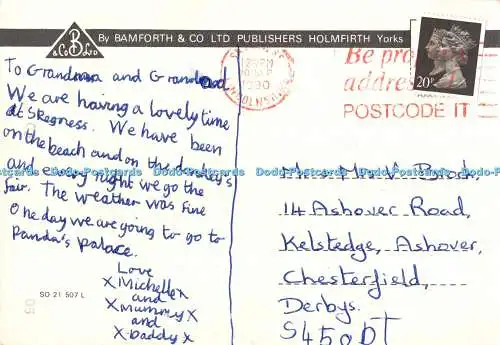 B
& Co Ltd
By BAMFORTH & CO LTD PUBLISHERS HOLMFIRTH Yorks
To Grandma and Grandad
We are having a lovely time
at Skegness. We have been
on the beach and on the donkey's
and every night we go the
fair. The weather was fine
One day we are going to go to
Panda's palace.
Love
x Michelle x
and
x Mummy x
and
x Daddy x
SO 21 507 L
20P
1990
Be
address
POSTCODE IT
14 Ashover Road,
Kelstedge, Ashover,
Chesterfield,
Derbys.
S45 0DT
Dodo-Postcards